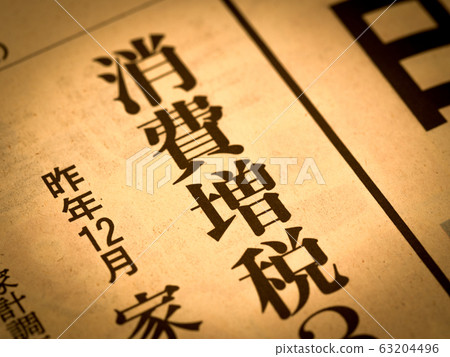 消費増税3
昨年12月家
家計調
63204496